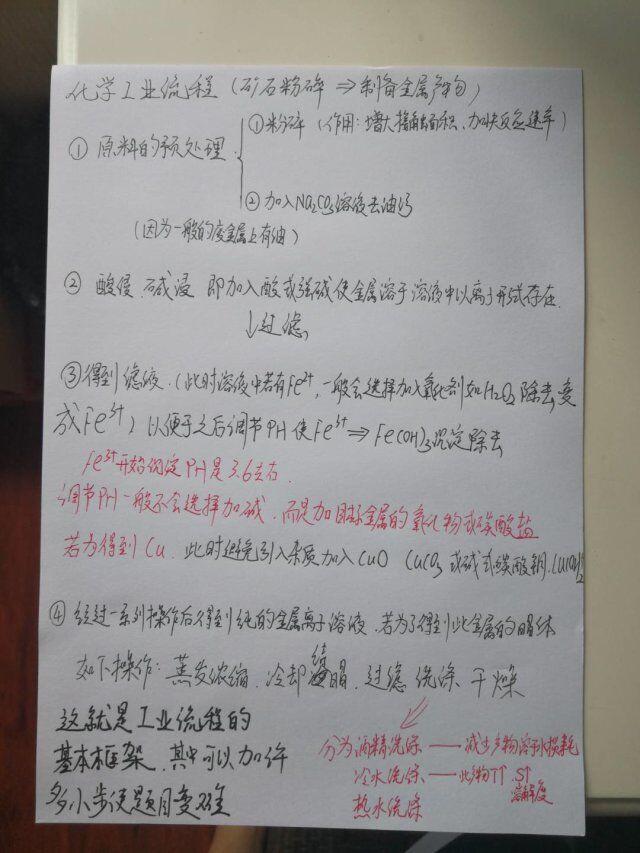 化学工业流程（矿石粉碎 ⇒ 制备金属产物）
① 原料的预处理
①粉碎（作用：增大接触面积、加快反应速率）
② 加入Na₂CO₃溶液去油污
（因为一般的废金属上有油）
② 酸浸、碱浸 即加入酸或强碱使金属溶于溶液中以离子形式存在.
↓过滤
③得到滤液.（此时溶液中若有Fe²⁺，一般会选择加入氧化剂如H₂O₂ 除去,变
成Fe³⁺）以便于之后调节PH 使Fe³⁺ ⇒ Fe(OH)₃沉淀除去
Fe³⁺开始沉淀PH是3.6左右.
调节PH一般不会选择加碱、而是加目标金属的氧化物或碳酸盐
若为得到Cu. 此时避免引入杂质加入CuO CuCO₃ 或碱式碳酸铜.
④ 经过一系列操作后得到纯的金属离子溶液、若为了得到此金属的晶体
如下操作：蒸发浓缩、冷却结晶、过滤 洗涤 干燥
这就是工业流程的
基本框架、其中可以加许
多小步使题目变难
分为酒精洗涤——减少产物溶于水损耗
冷水洗涤——此物T↑ S↑
溶解度
热水洗涤